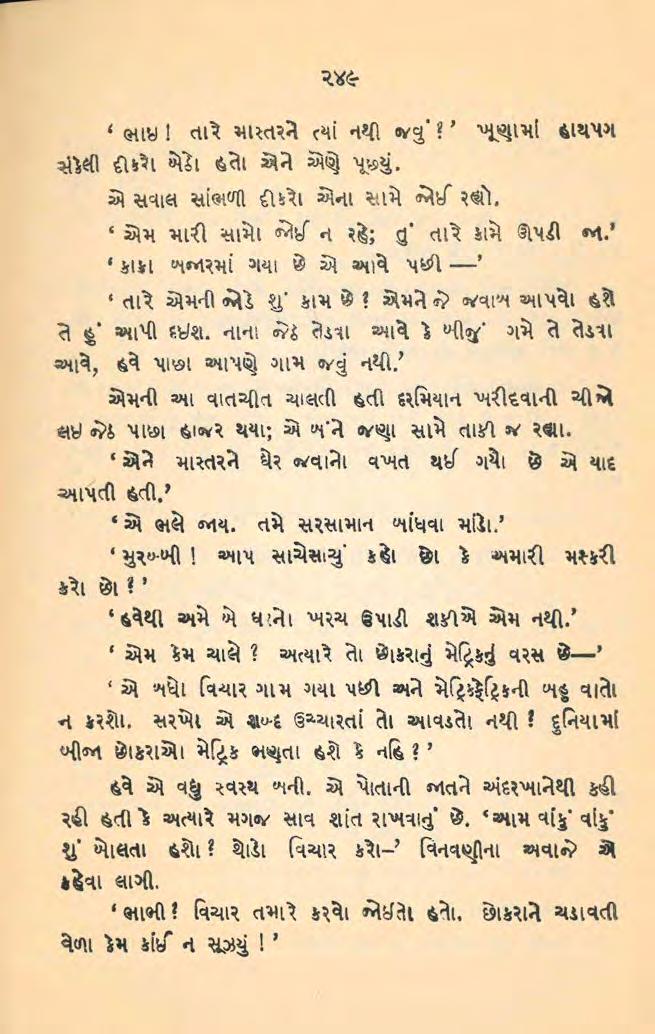 ૨૪૯
‘ ભાઇ ! તારે માસ્તરને ત્યાં નથી જવું ? ’ ખૂણામાં હાથપગ
સંકેલી દીકરો બેઠો હતો એને એણે પૂછ્યું.
એ સવાલ સાંભળી દીકરો એના સામે જોઈ રહ્યો.
‘ એમ મારી સામો જોઈ ન રહે; તું તારે કામે ઊપડી જા.’
‘ કાકા બજારમાં ગયા છે એ આવે પછી —’
‘ તારે એમની જોડે શું કામ છે ? એમને જે જવાબ આપવો હશે
તે હું આપી દઇશ. નાના જેઠ તેડવા આવે કે બીજું ગમે તે તેડવા
આવે, હવે પાછા આપણે ગામ જવું નથી.’
એમની આ વાતચીત ચાલતી હતી દરમિયાન ખરીદવાની ચીજો
લઇ જેઠ પાછા હાજર થયા; એ બંને જણા સામે તાકી જ રહ્યા.
‘ એને માસ્તરને ઘેર જવાનો વખત થઈ ગયો છે એ યાદ
આપતી હતી.’
‘ એ ભલે જાય. તમે સરસામાન બાંધવા માંડો.’
‘ મુરબ્બી ! આપ સાચેસાચું કહો છો કે અમારી મસ્કરી
કરો છો ? ’
‘ હવેથી અમે બે ઘરનો ખરચ ઉપાડી શકીએ એમ નથી.’
‘ એમ કેમ ચાલે ? અત્યારે તો છોકરાનું મેટ્રિકનું વરસ છે—’
‘ એ બધો વિચાર ગામ ગયા પછી અને મેટ્રિકફેટ્રિકની બહુ વાતો
ન કરશો. સરખો એ શબ્દ ઉચ્ચારતાં તો આવડતો નથી ! દુનિયામાં
બીજા છોકરાઓ મેટ્રિક ભણતા હશે કે નહિ ? ’
હવે એ વધુ સ્વસ્થ બની. એ પોતાની જાતને અંદરખાનેથી કહી
રહી હતી કે અત્યારે મગજ સાવ શાંત રાખવાનું છે. ‘આમ વાંકું વાંકું
શું બોલતા હશો ? થોડો વિચાર કરો–’ વિનવણીના અવાજે એ
કહેવા લાગી.
‘ ભાભી ? વિચાર તમારે કરવો જોઈતો હતો. છોકરાને ચડાવતી
વેળા કેમ કાંઈ ન સૂઝયું ! ’